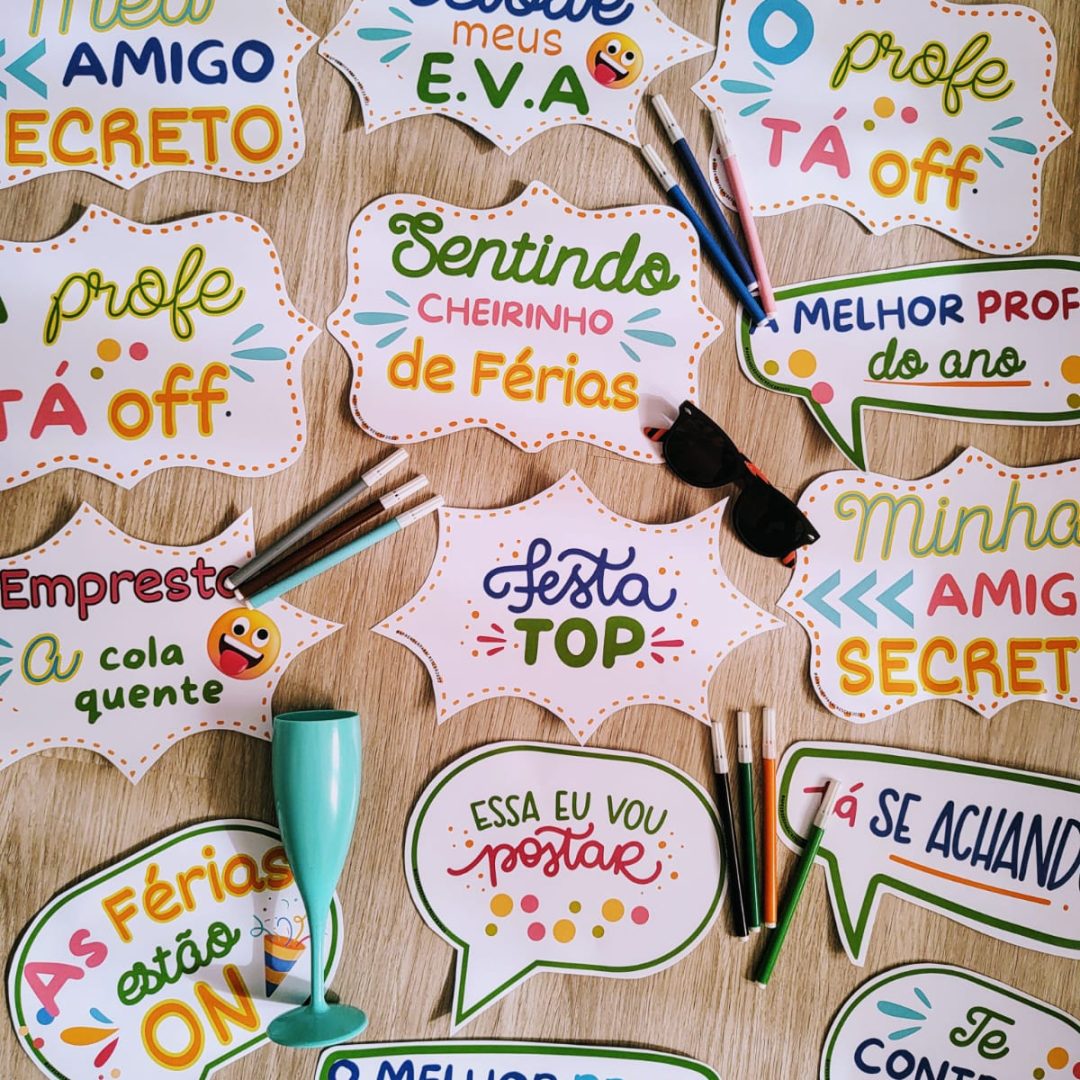 Meu
AMIGO
SECRETO
meus
E.V.A
O
profe
TÁ off.
profe
TÁ off.
Sentindo
CHEIRINHO
de Férias
A MELHOR PROF
do ano
Empresto
A cola
quente
festa
TOP
Minha
AMIG
SECRET
ESSA EU VOU
postar
Tá SE ACHAND
As Férias
estão
ON
Te
O MELHOR